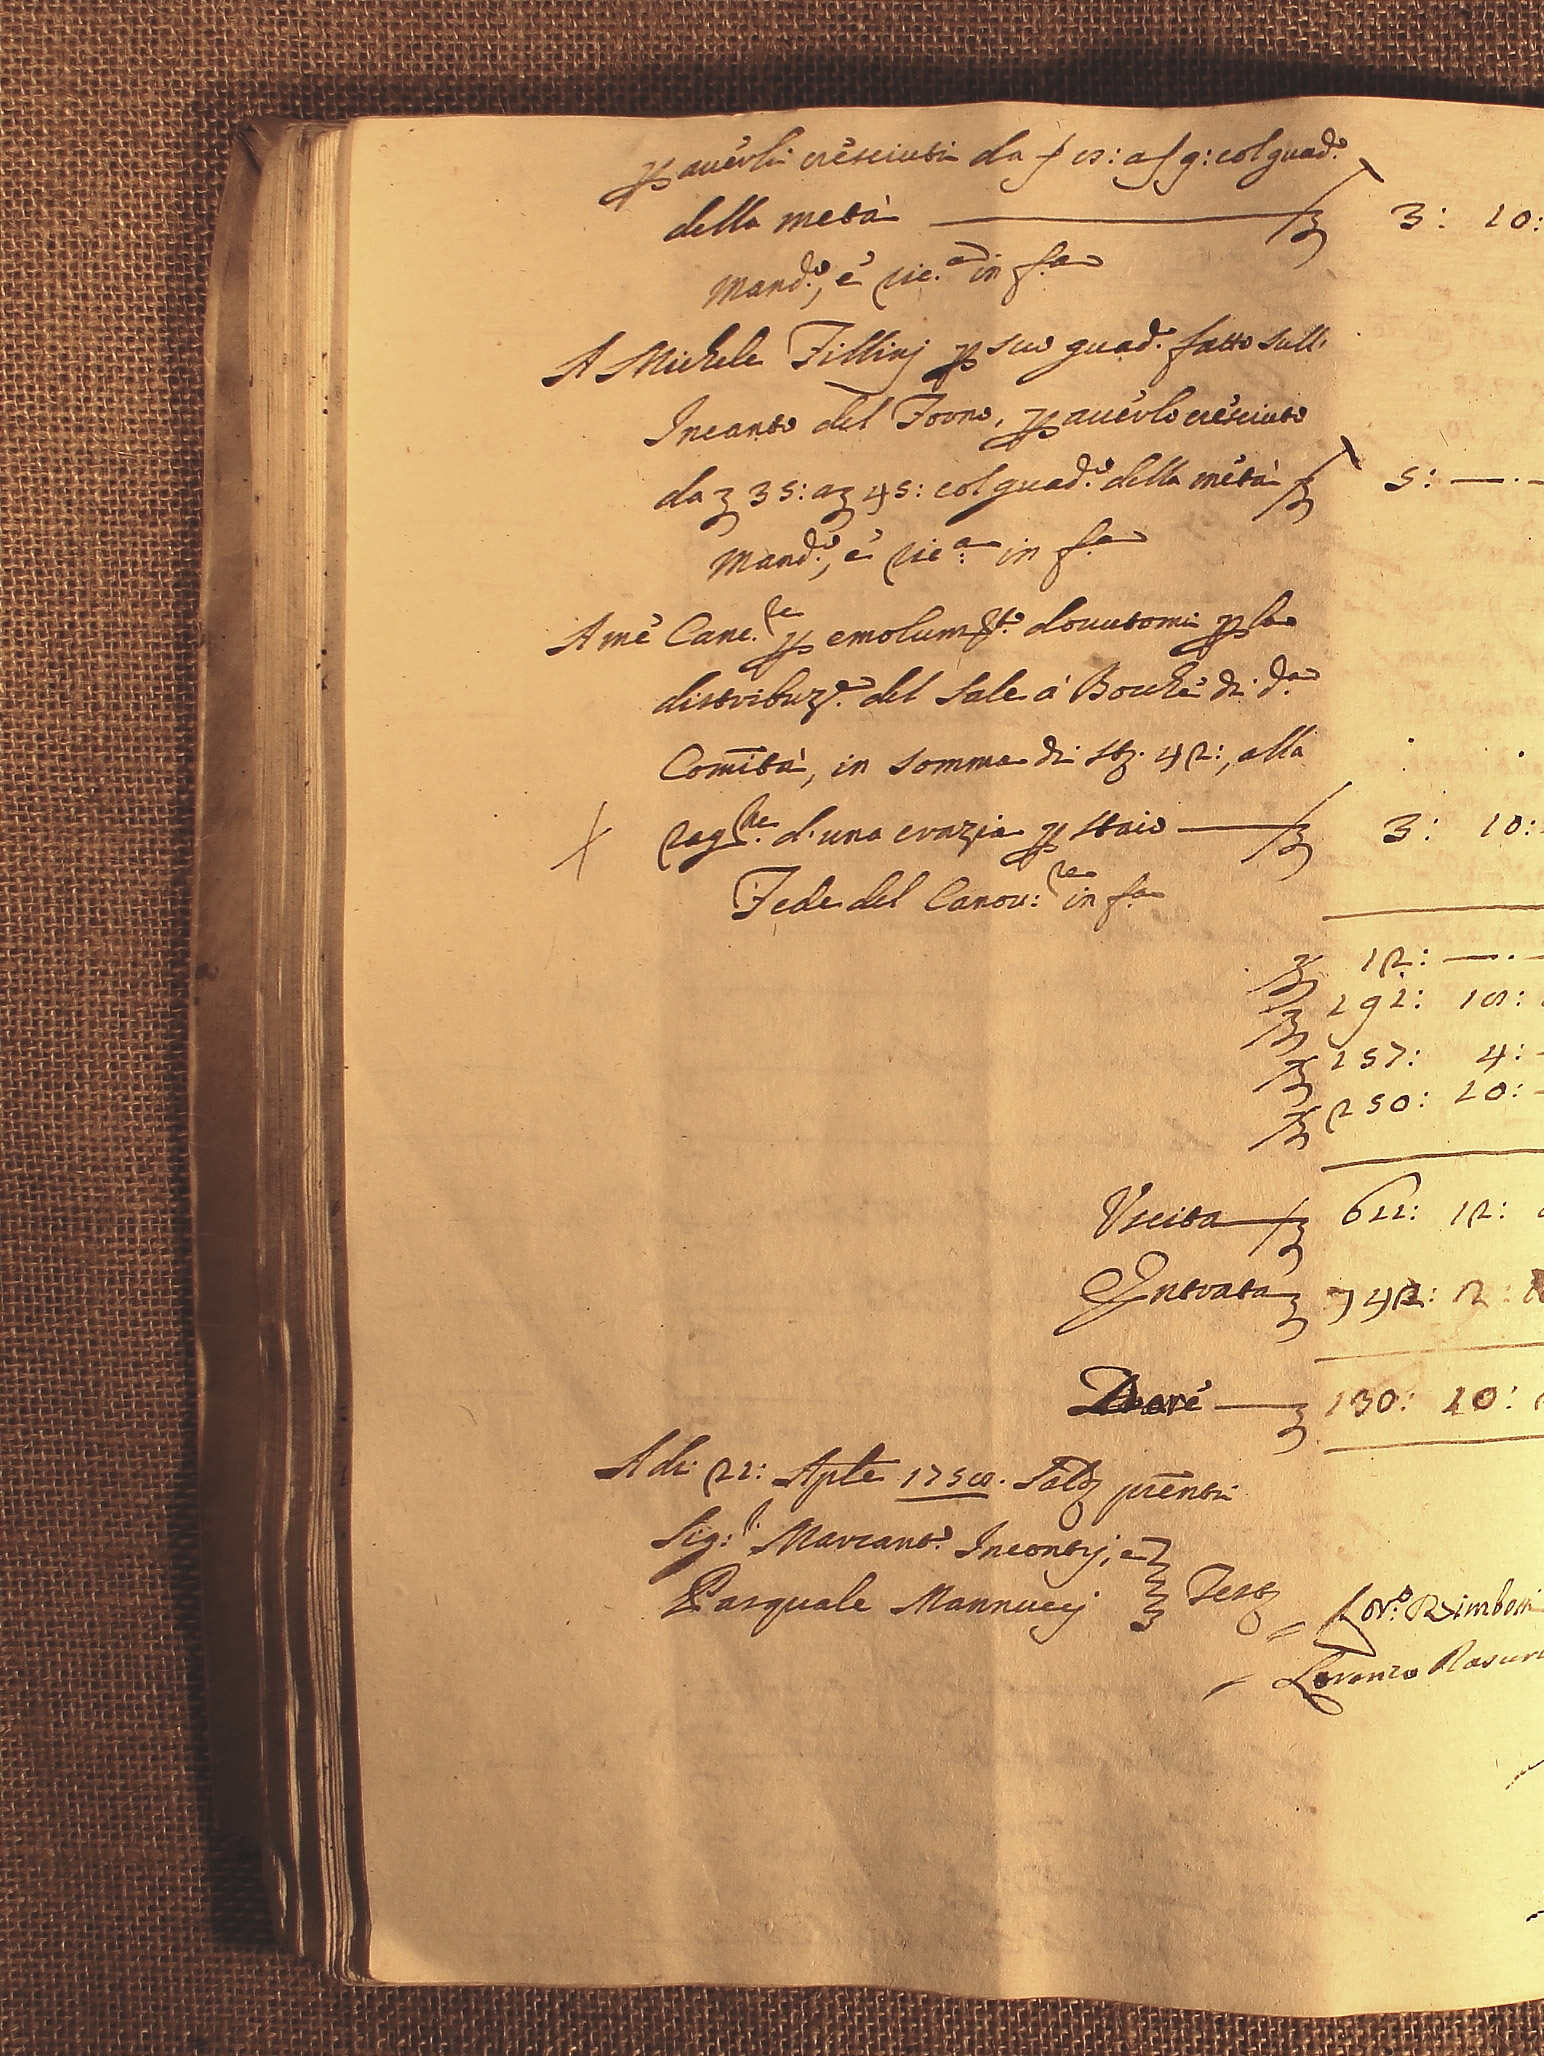 p averli cresciuti da f 8: a f 9: col guad.o
della metà 3: 10:
Mand.o, e ric.a in f.a
A Michele Fillinj p suo guad.o fatto sull.
Incanto del Forno, p averlo cresciuto
da 35: a 45: col guad.o della metà 5: —.—
Mand.o, e ric.a in f.a
A mè Canc.re p emolum.to dovutomi p la
distribuz.e del Sale à Bocche di d.a
Comità, in somma di st. 42:, alla
rag.ne d'una crazia p staio 3: 10:
Fede del Canov:re in f.a
12: —.—
191: 18:
157: 4:
250: 10:
Uscita 611: 12:
Entrata 742: 2:
Dare 130: 10:
A di 21: Aple 1758. prēnti
Sig:ri Marcant.o Incontrj, e
Pasquale Mannuccj Test
Lor.o
Lorenzo